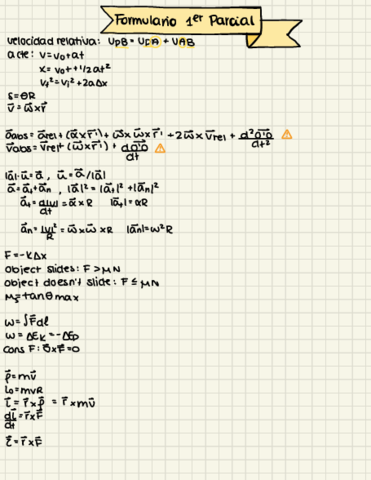 Formulario 1er Parcial
velocidad relativa: UPB = UPA + UAB
a cte: v = v₀ + at
x = v₀t + 1/2 at²
vf² = vi² + 2aΔx
s = θR
v⃗ = ω⃗ x r⃗
a⃗abs = a⃗rel + (α⃗ x r⃗') + ω⃗ x ω⃗ x r⃗' + 2ω⃗ x v⃗rel + d²O⃗'O / dt² ⚠
v⃗abs = v⃗rel + (ω⃗ x r⃗') + dO⃗'O / dt ⚠
|a|·u⃗ = a⃗ , u⃗ = a⃗/|a|
a⃗ = a⃗t + a⃗n , |a|² = |at|² + |an|²
a⃗t = d|v| / dt = α⃗ x R |at| = αR
a⃗n = |v|² / R = ω⃗ x ω⃗ x R |an| = ω²R
F = -KΔx
object slides: F > μN
object doesn't slide: F ≤ μN
μs = tan θ max
W = ∫F⃗dl
W = ΔEk = -ΔEp
Cons F: ∇⃗ x F⃗ = 0
p⃗ = mv⃗
L₀ = mvR
L⃗ = r⃗ x p⃗ = r⃗ x mv⃗
dL⃗ / dt = r⃗ x F⃗
τ⃗ = r⃗ x F⃗